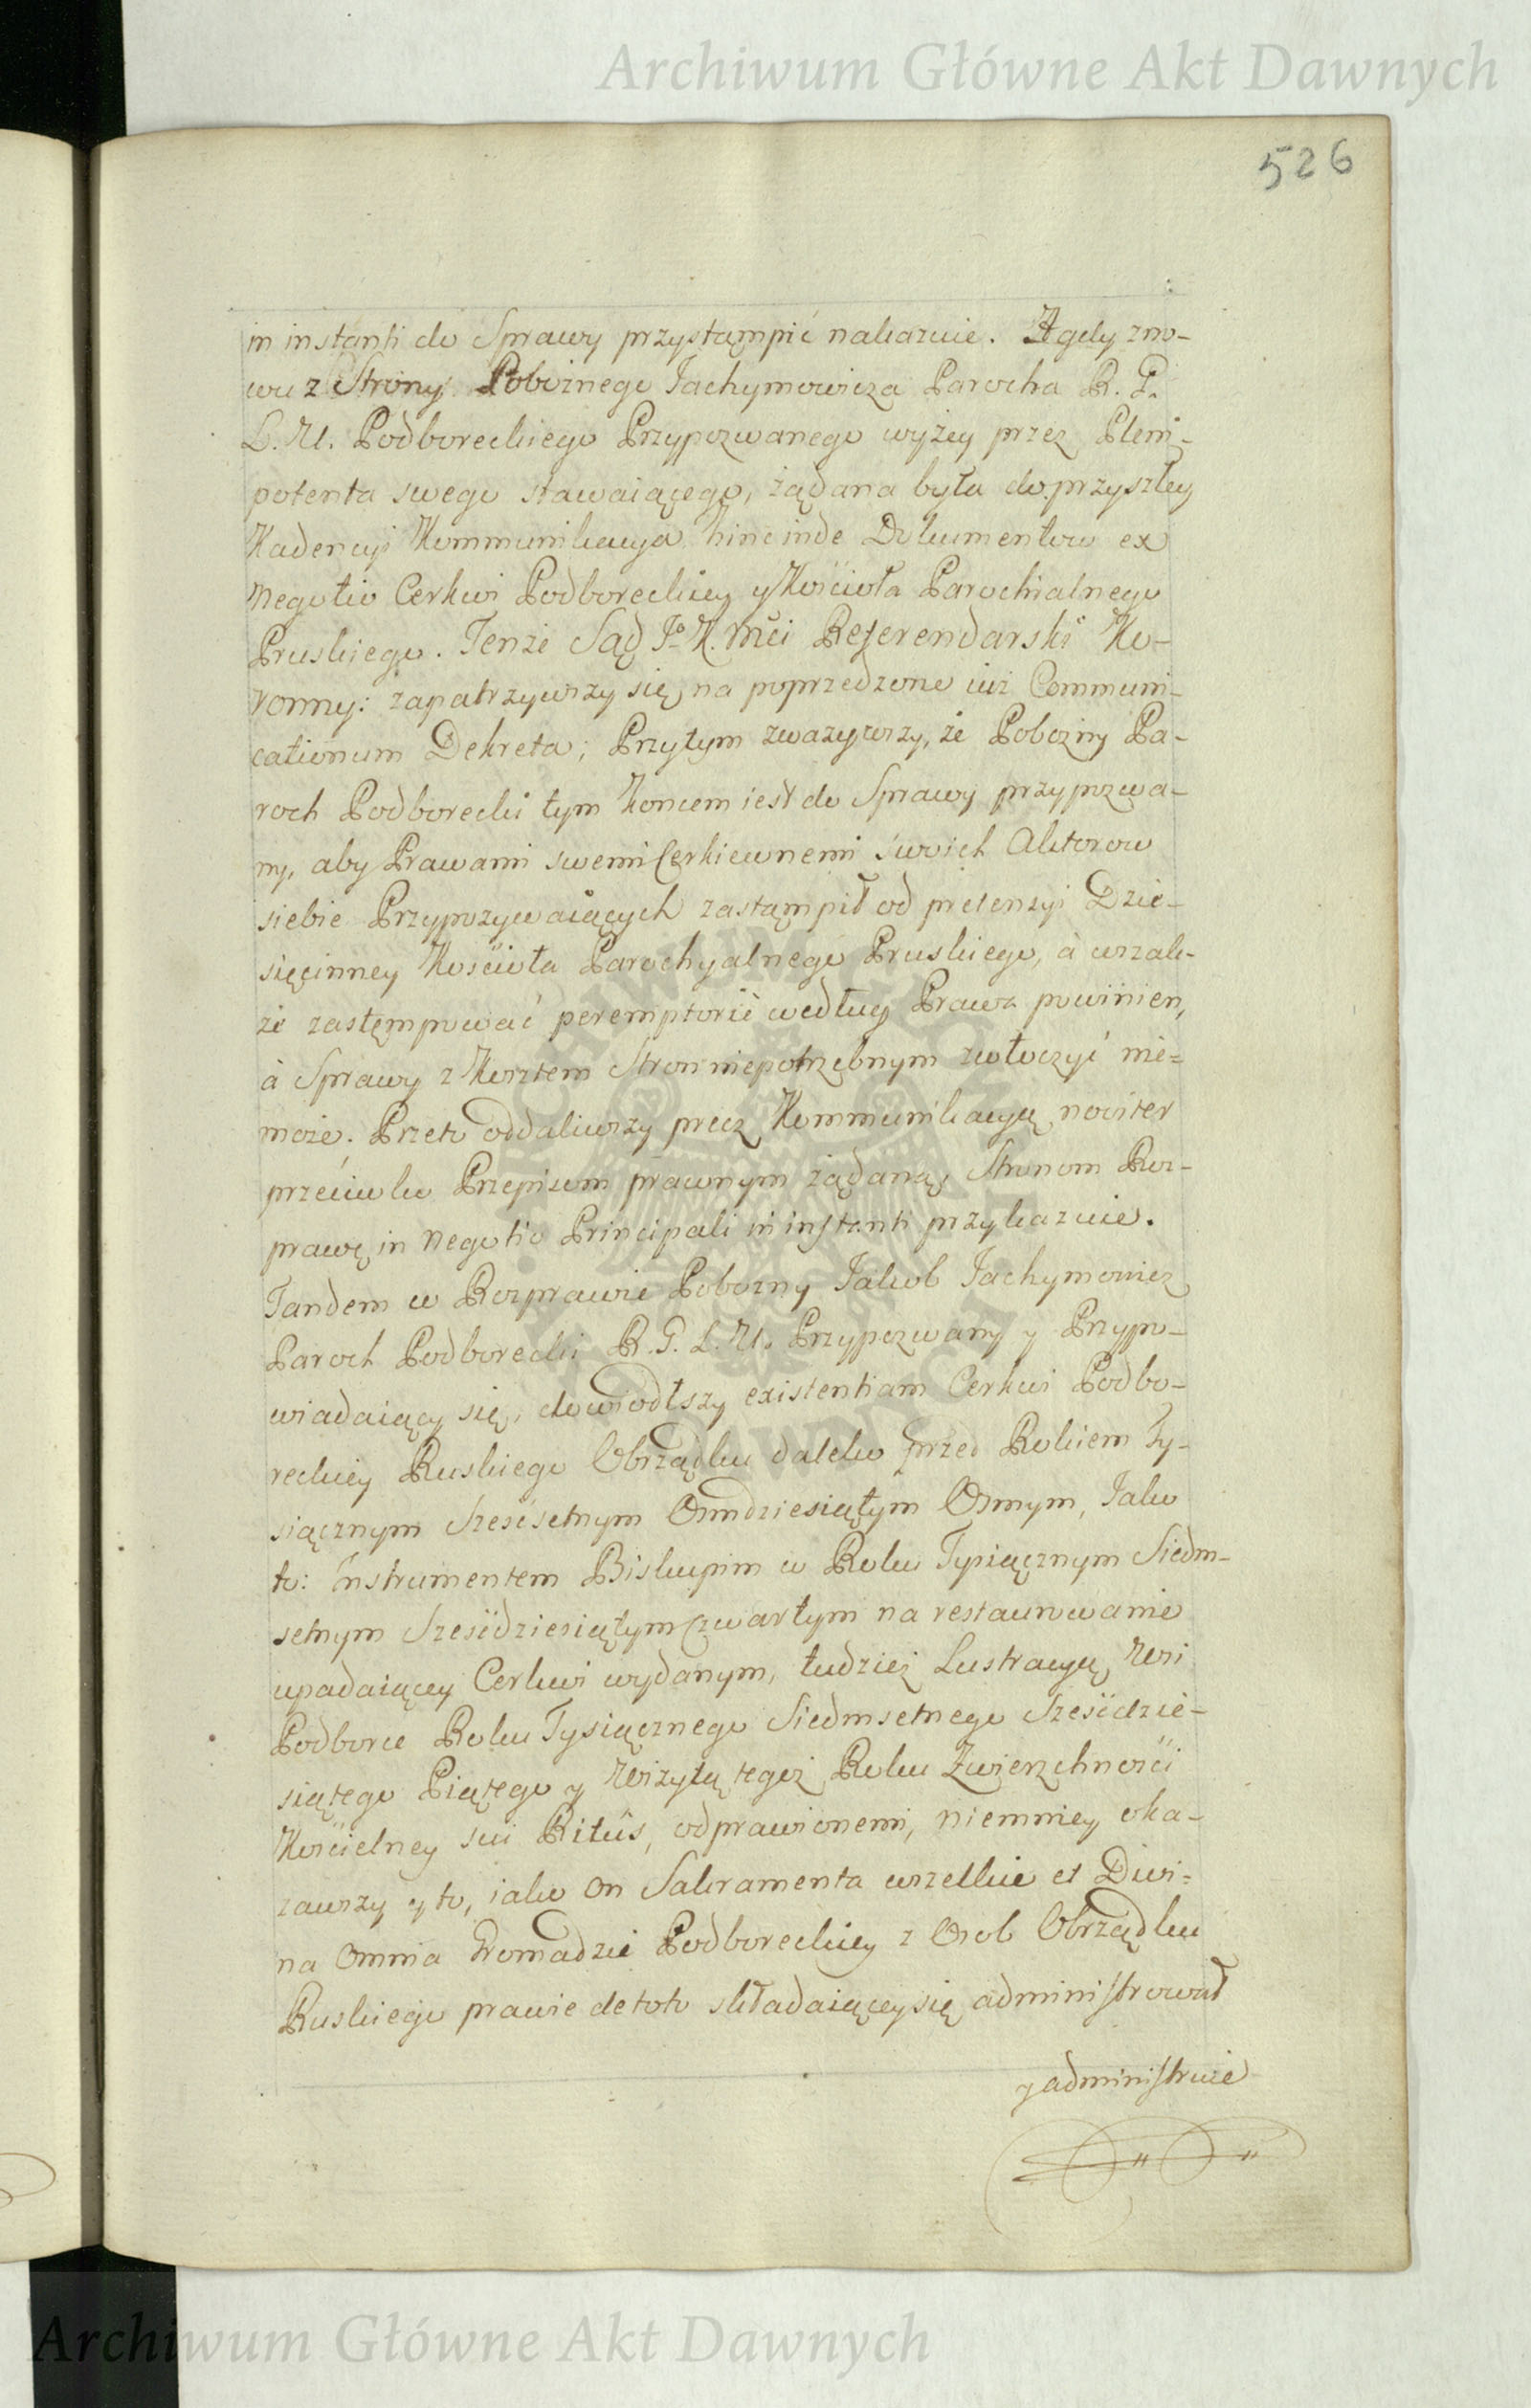 Archiwum Główne Akt Dawnych
526
in instanti do Sprawy przystąmpić nakazuie. A gdy zno-
wu z Strony Pobożnego Jachymowicza Parocha R. G.
L. U. Podboreckiego Przypozwanego wyżey przez Pleni-
potenta swego stawaiącego, żądana była do przyszłey
Kadencyi Kommunikacya hinc inde Dokumentow ex
Negotio Cerkwi Podboreckiey y Kościoła Parochialnego
Pruskiego. Tenże Sąd Jo K. Mći Referendarski Ko-
ronny: zapatrzywszy się na poprzedzone iuż Communi-
cationum Dekreta; Przytym zważywszy, że Pobożny Pa-
roch Podborecki tym Koncem iest do Sprawy przypozwa-
ny, aby Prawami swemi Cerkiewnemi swoich Aktorow
siebie Przypozywaiących zastąmpił od pretensyi Dzie-
sięcinney Kościoła Parochyalnego Pruskiego, à wszak-
że zastęmpować peremptoriè według Prawa powinien,
à Sprawy z Kosztem Stron niepotrzebnym zwłoczyć nie=
może. Przeto oddaliwszy precz Kommunikacyą noviter
przeciwko Przepisom prawnym żądaną, Stronom Roz-
prawę in Negotio Principali in instanti przykazuie.
Tandem w Rozprawie Pobożny Jakob Jachymowicz
Paroch Podborecki R. G. L. U. Przypozwany y Przypo-
wiadaiący się, dowiodłszy existentiam Cerkwi Podbo-
reckiey Ruskiego Obrządku daleko przed Rokiem Ty-
siącznym Sześćsetnym Osmdziesiątym Osmym, Jako
to: Instrumentem Biskupim w Roku Tysiącznym Siedm-
setnym Sześćdziesiątym Czwartym na restaurowanie
upadaiącey Cerkwi wydanym, tudzież Lustracyą Wsi
Podborce Roku Tysiącznego Siedmsetnego Sześćdzie-
siątego Piątego y Wizytą tegoż Roku Zwierzchności
Kościelney sui Ritûs, odprawionemi, niemniey oka-
zawszy y to, iako on Sakramenta wszelkie et Divi=
na omnia Gromadzie Podboreckiey z Osob Obrządku
Ruskiego prawie de toto składaiącey się administrował
y administruie
Archiwum Główne Akt Dawnych